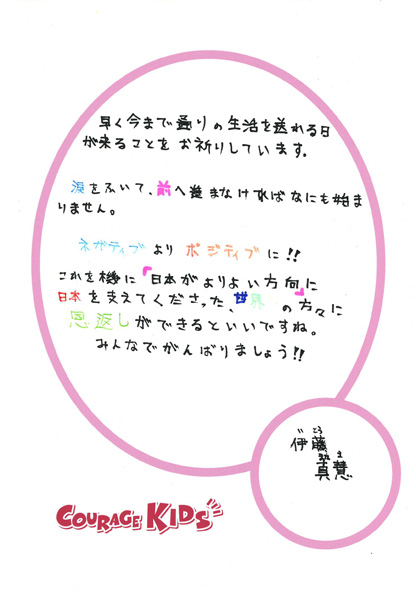 早く今まで通りの生活を送れる日
が来ることをお祈りしています。
涙をふいて、前へ進まなければなにも始ま
りません。
ネガティブよりポジティブに!!
これを機に「日本がよりよい方向」に
日本を支えてくださった、世界の方々に
恩返しができるといいですね。
みんなでがんばりましょう!!
伊藤
真慧
COURAGE KIDS